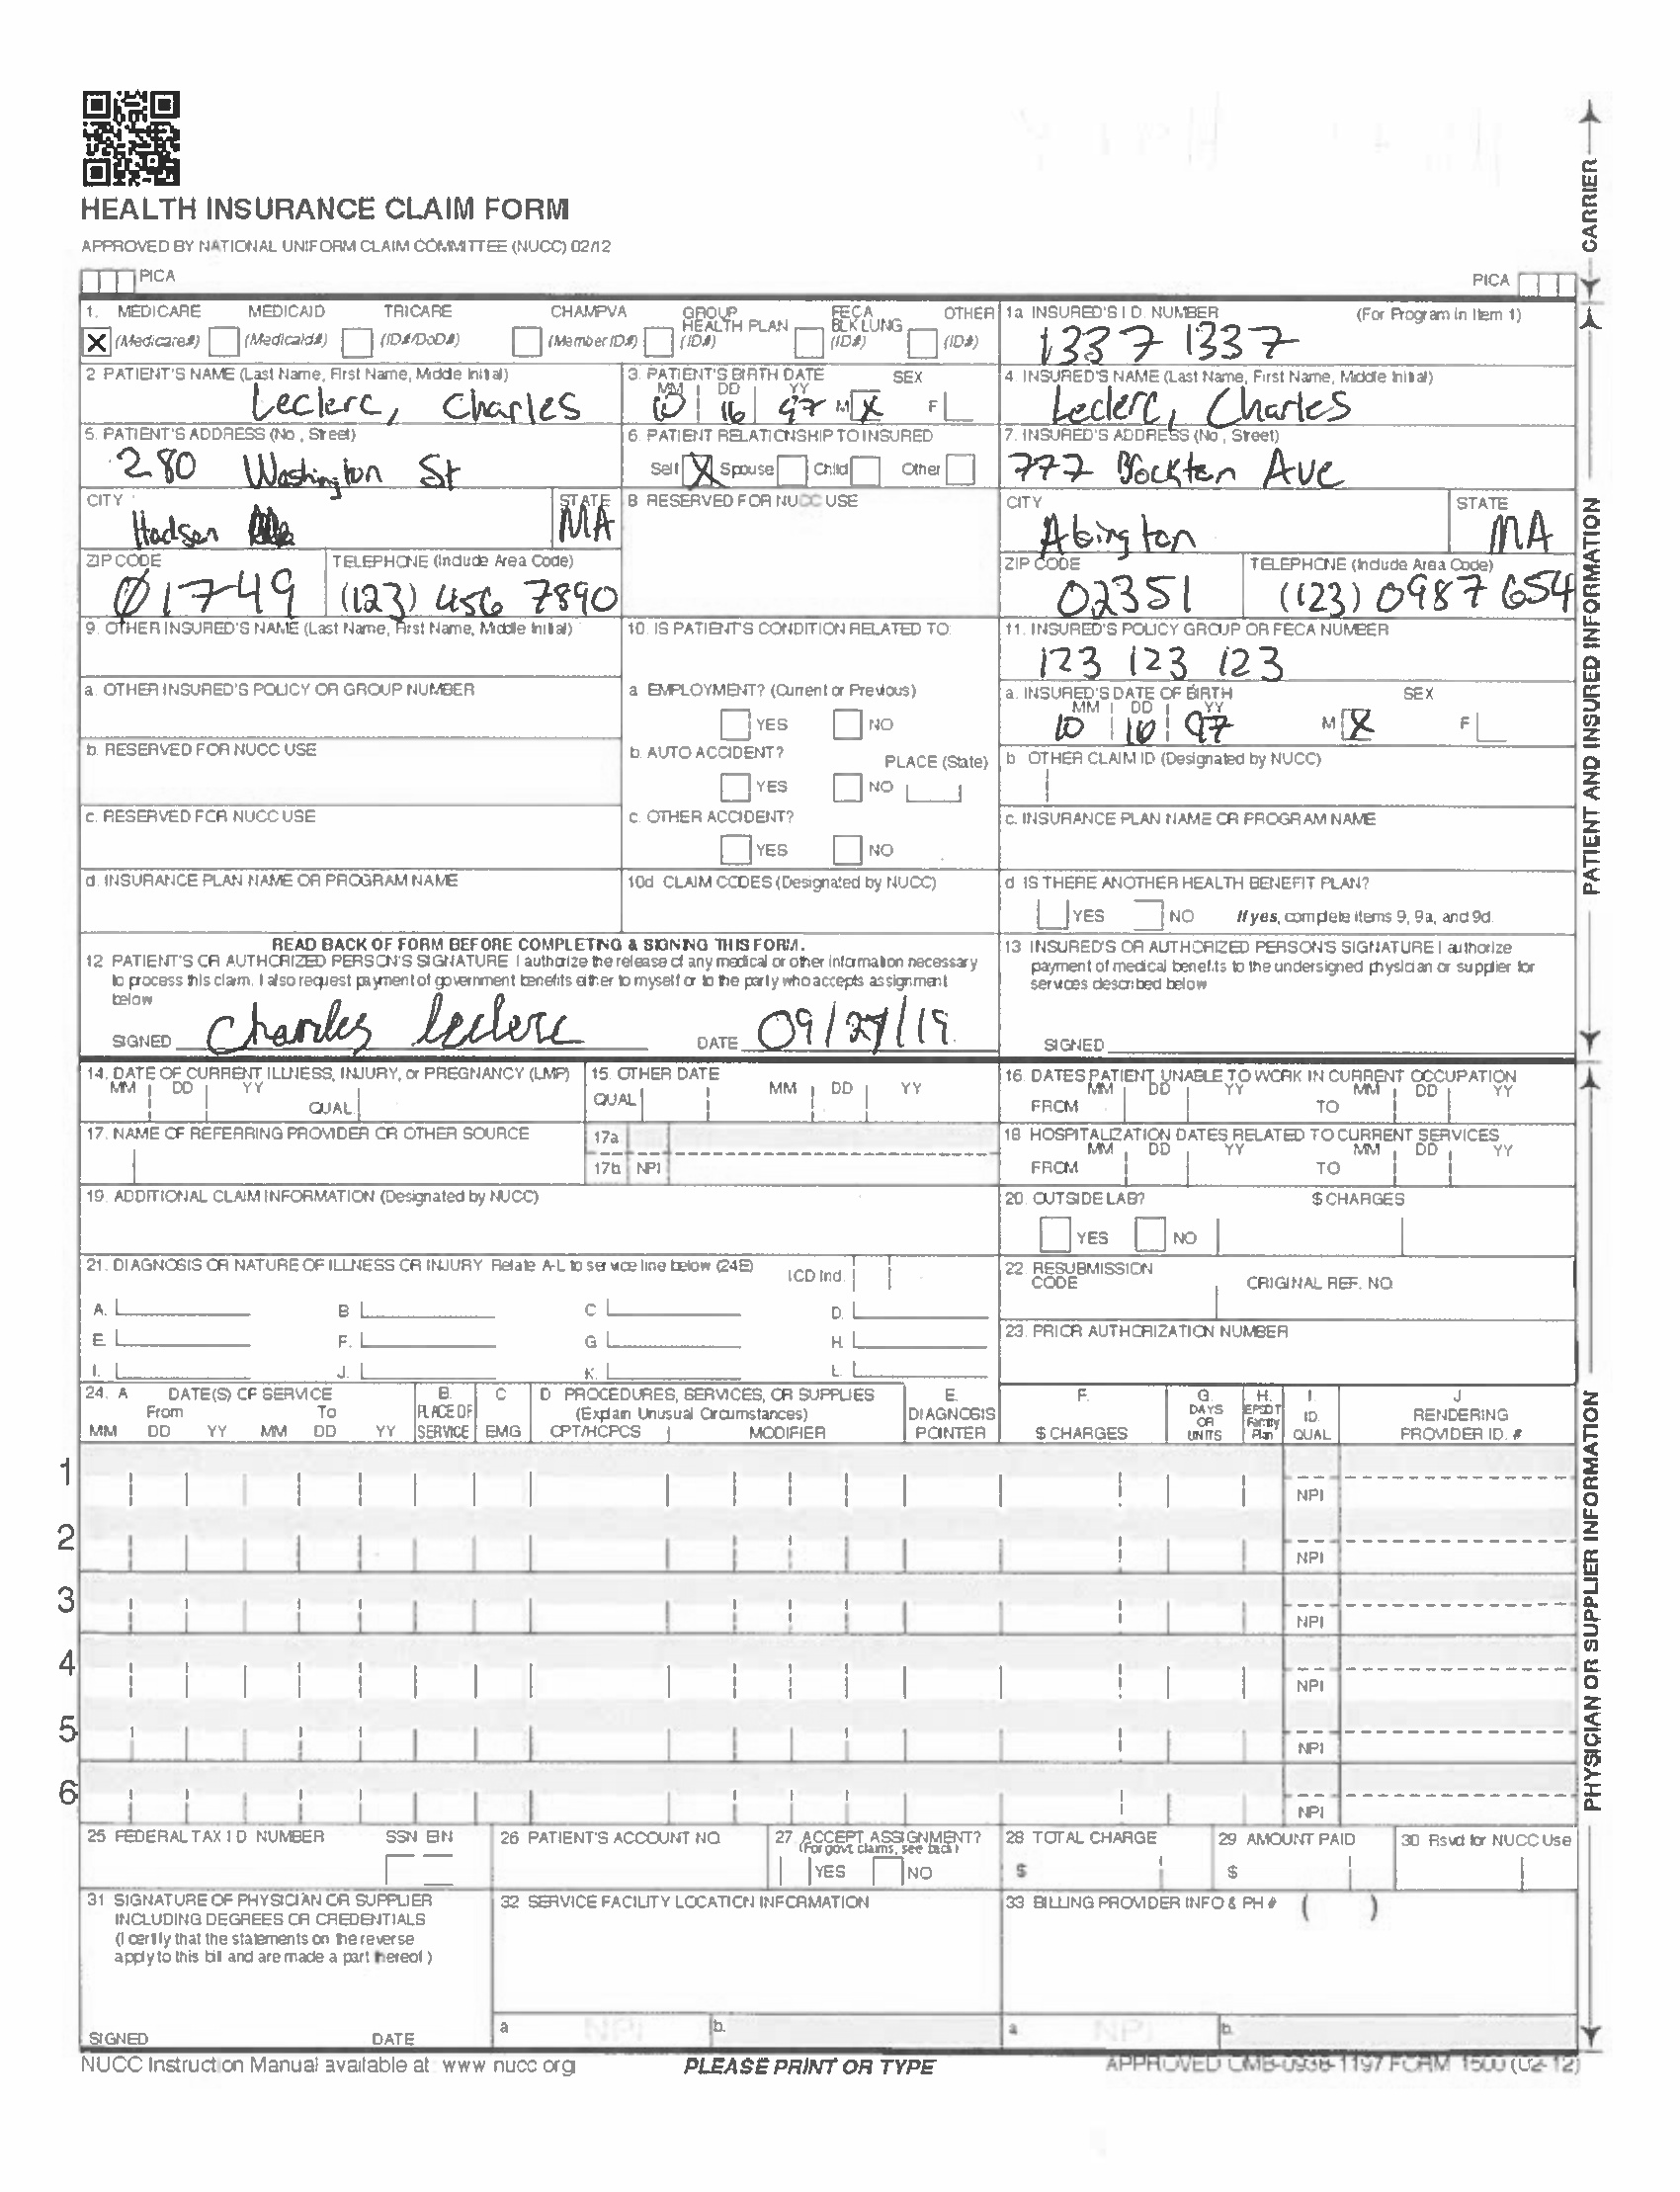 HEALTH INSURANCE CLAIM FORM
APPROVED BY NATIONAL UNIFORM CLAIM COMMITTEE (NUCC) 02/12
PICA
PICA
CARRIER
1. MEDICARE MEDICAID TRICARE CHAMPVA GROUP HEALTH PLAN FECA BLK LUNG OTHER
X (Medicare#) (Medicaid#) (ID#/DoD#) (Member ID#) (ID#) (ID#) (ID#)
1a INSURED'S I.D. NUMBER (For Program in Item 1)
1337 1337
2 PATIENT'S NAME (Last Name, First Name, Middle Initial)
Leclerc, Charles
3. PATIENT'S BIRTH DATE SEX
MM DD YY
10 16 97 M X F
4. INSURED'S NAME (Last Name, First Name, Middle Initial)
Leclerc, Charles
5. PATIENT'S ADDRESS (No., Street)
280 Washington St
6. PATIENT RELATIONSHIP TO INSURED
Self X Spouse Child Other
7. INSURED'S ADDRESS (No., Street)
777 Brockton Ave
CITY
Hudson
STATE
MA
8 RESERVED FOR NUCC USE
CITY
Abington
STATE
MA
ZIP CODE
01749
TELEPHONE (Include Area Code)
(123) 456 7890
ZIP CODE
02351
TELEPHONE (Include Area Code)
(123) 0987 654
9. OTHER INSURED'S NAME (Last Name, First Name, Middle Initial)
10. IS PATIENT'S CONDITION RELATED TO:
11. INSURED'S POLICY GROUP OR FECA NUMBER
123 123 123
a. OTHER INSURED'S POLICY OR GROUP NUMBER
a EMPLOYMENT? (Current or Previous)
YES NO
a. INSURED'S DATE OF BIRTH SEX
MM DD YY
10 16 97 M X F
b. RESERVED FOR NUCC USE
b. AUTO ACCIDENT? PLACE (State)
YES NO
b OTHER CLAIM ID (Designated by NUCC)
c. RESERVED FOR NUCC USE
c. OTHER ACCIDENT?
YES NO
c. INSURANCE PLAN NAME OR PROGRAM NAME
d. INSURANCE PLAN NAME OR PROGRAM NAME
10d CLAIM CODES (Designated by NUCC)
d IS THERE ANOTHER HEALTH BENEFIT PLAN?
YES NO If yes, complete items 9, 9a, and 9d.
READ BACK OF FORM BEFORE COMPLETING & SIGNING THIS FORM.
12 PATIENT'S OR AUTHORIZED PERSON'S SIGNATURE I authorize the release of any medical or other information necessary
to process this claim. I also request payment of government benefits either to myself or to the party who accepts assignment
below
SIGNED Charles Leclerc DATE 09/27/19
13 INSURED'S OR AUTHORIZED PERSON'S SIGNATURE I authorize
payment of medical benefits to the undersigned physician or supplier for
services described below
SIGNED
PATIENT AND INSURED INFORMATION
14. DATE OF CURRENT ILLNESS, INJURY, or PREGNANCY (LMP)
MM DD YY
QUAL
15. OTHER DATE
QUAL MM DD YY
16. DATES PATIENT UNABLE TO WORK IN CURRENT OCCUPATION
MM DD YY MM DD YY
FROM TO
17. NAME OF REFERRING PROVIDER OR OTHER SOURCE
17a
17b NPI
18 HOSPITALIZATION DATES RELATED TO CURRENT SERVICES
MM DD YY MM DD YY
FROM TO
19. ADDITIONAL CLAIM INFORMATION (Designated by NUCC)
20. OUTSIDE LAB? $ CHARGES
YES NO
21. DIAGNOSIS OR NATURE OF ILLNESS OR INJURY Relate A-L to service line below (24E) ICD Ind.
A. B C D.
E F. G H.
I. J. K. L.
22 RESUBMISSION
CODE ORIGINAL REF. NO.
23. PRIOR AUTHORIZATION NUMBER
24. A DATE(S) OF SERVICE B. C D PROCEDURES, SERVICES, OR SUPPLIES E. F. G. H. I. J
From To PLACE OF (Explain Unusual Circumstances) DIAGNOSIS DAYS OR UNITS EPSDT Family Plan ID. RENDERING
MM DD YY MM DD YY SERVICE EMG CPT/HCPCS MODIFIER POINTER $ CHARGES QUAL PROVIDER ID. #
1 NPI
2 NPI
3 NPI
4 NPI
5 NPI
6 NPI
25 FEDERAL TAX I D NUMBER SSN EIN
26 PATIENT'S ACCOUNT NO.
27. ACCEPT ASSIGNMENT?
(For govt. claims, see back)
YES NO
28 TOTAL CHARGE
$
29 AMOUNT PAID
$
30 Rsvd for NUCC Use
31 SIGNATURE OF PHYSICIAN OR SUPPLIER
INCLUDING DEGREES OR CREDENTIALS
(I certify that the statements on the reverse
apply to this bill and are made a part thereof.)
SIGNED DATE
32 SERVICE FACILITY LOCATION INFORMATION
a NPI b.
33 BILLING PROVIDER INFO & PH # ( )
a NPI b.
PHYSICIAN OR SUPPLIER INFORMATION
NUCC Instruction Manual available at: www nucc org
PLEASE PRINT OR TYPE
APPROVED OMB-0938-1197 FORM 1500 (02-12)